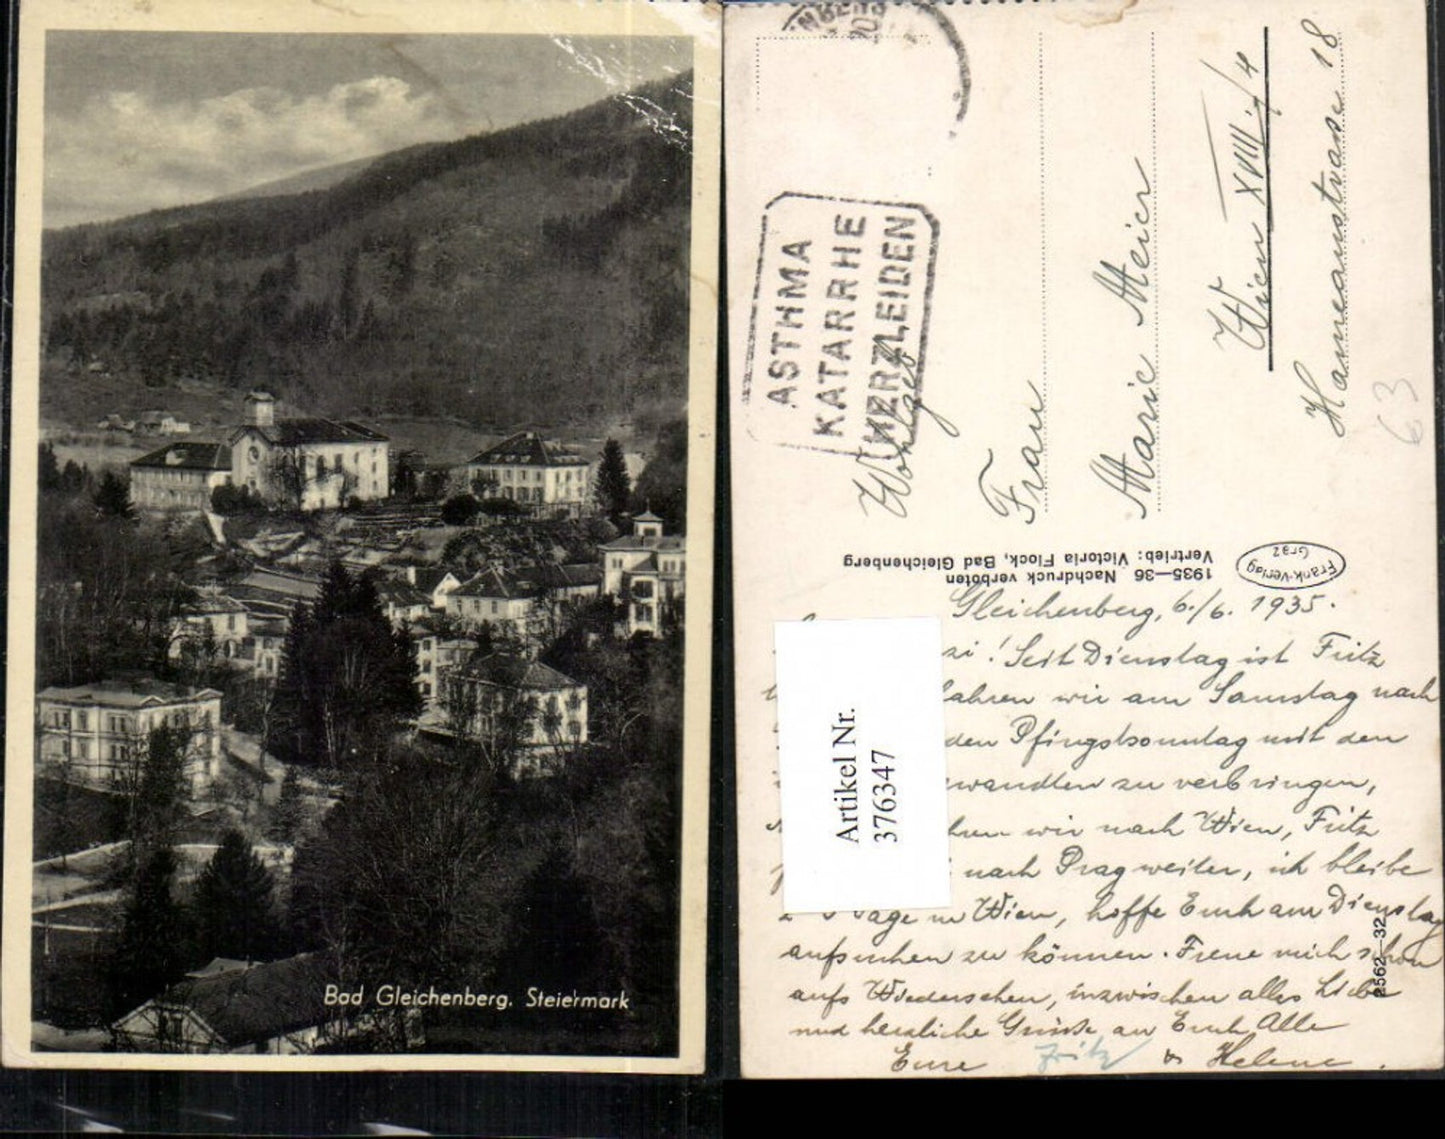 Bad Gleichenberg. Steiermark
ASTHMA
KATARRHE
HERZLEIDEN
Wohlgeb
Frau
Marie Meier
Wien XVIII./4
Hameaustrasse 18
63
Frank-Verlag
Graz
1935—36 Nachdruck verboten
Vertrieb: Victoria Flock, Bad Gleichenberg
Artikel Nr.
376347
2562—32
Gleichenberg, 6./6. 1935.
zi! Seit Dienstag ist Fritz
fahren wir am Samstag nach
den Pfingstsonntag mit den
wandten zu verbringen,
hren wir nach Wien, Fritz
nach Prag weiter, ich bleibe
Tage in Wien, hoffe Euch am Dienstag
aufsuchen zu können. Freue mich schon
aufs Wiedersehen, inzwischen alles Liebe
und herzliche Grüsse an Euch Alle
Eure Fritz & Helene.